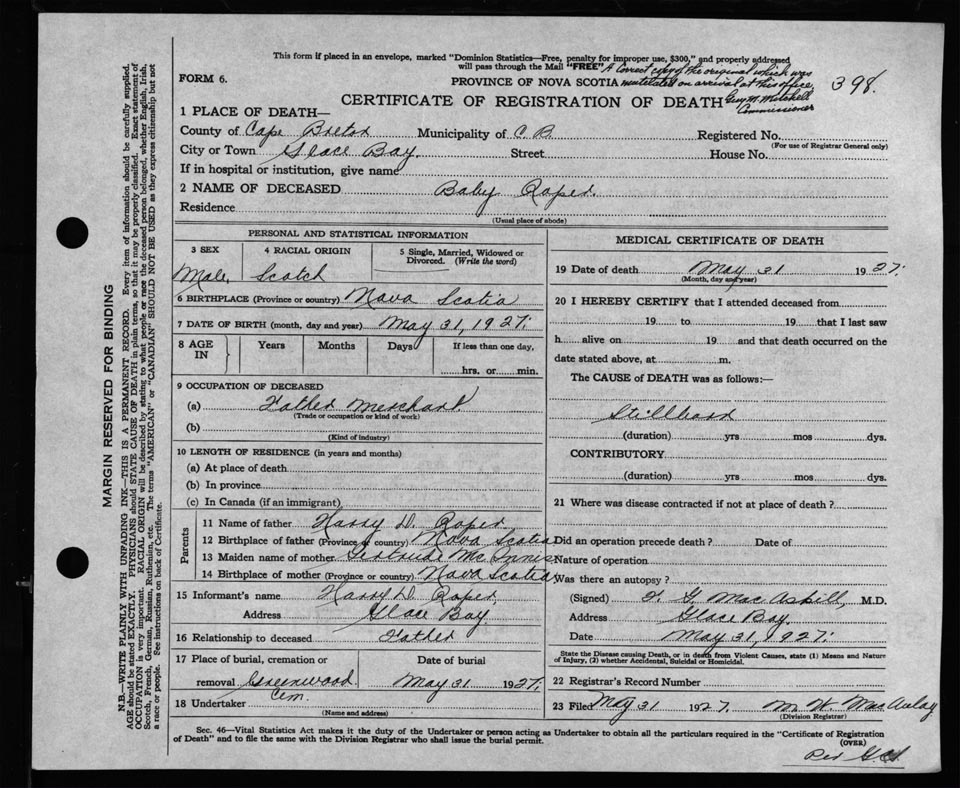 This form if placed in an envelope, marked "Dominion Statistics—Free, penalty for improper use, $300," and properly addressed
will pass through the Mail "FREE" A correct copy of the original which was
FORM 6. PROVINCE OF NOVA SCOTIA mutilated on arrival at this office 398.
CERTIFICATE OF REGISTRATION OF DEATH Geo. M. Mitchell
Commissioner
1 PLACE OF DEATH—
County of Cape Breton Municipality of C. B. Registered No.
(For use of Registrar General only)
City or Town Glace Bay. Street House No.
If in hospital or institution, give name
2 NAME OF DECEASED Baby Roper.
Residence
(Usual place of abode)
PERSONAL AND STATISTICAL INFORMATION
3 SEX 4 RACIAL ORIGIN 5 Single, Married, Widowed or
Divorced. (Write the word)
Male, Scotch
6 BIRTHPLACE (Province or country) Nova Scotia
7 DATE OF BIRTH (month, day and year) May 31, 1927.
8 AGE IN Years Months Days If less than one day,
hrs. or min.
9 OCCUPATION OF DECEASED
(a) Father Merchant
(Trade or occupation or kind of work)
(b)
(Kind of industry)
10 LENGTH OF RESIDENCE (in years and months)
(a) At place of death
(b) In province
(c) In Canada (if an immigrant)
Parents
11 Name of father Harry D. Roper
12 Birthplace of father (Province or country) Nova Scotia
13 Maiden name of mother Gertrude McInnis
14 Birthplace of mother (Province or country) Nova Scotia
15 Informant's name Harry D. Roper,
Address Glace Bay
16 Relationship to deceased Father
17 Place of burial, cremation or Date of burial
removal Greenwood May 31 1927.
Cem.
18 Undertaker
(Name and address)
MEDICAL CERTIFICATE OF DEATH
19 Date of death May 31 1927.
(Month, day and year)
20 I HEREBY CERTIFY that I attended deceased from
19 to 19 that I last saw
h alive on 19 and that death occurred on the
date stated above, at m.
The CAUSE of DEATH was as follows:—
Stillborn
(duration) yrs mos dys.
CONTRIBUTORY
(duration) yrs mos dys.
21 Where was disease contracted if not at place of death?
Did an operation precede death? Date of
Nature of operation
Was there an autopsy?
(Signed) G. MacAskill, M.D.
Address Glace Bay.
Date May 31, 1927.
State the Disease causing Death, or in death from Violent Causes, state (1) Means and Nature
of Injury, (2) whether Accidental, Suicidal or Homicidal.
22 Registrar's Record Number
23 Filed May 31 1927. M. W. MacAulay
(Division Registrar)
Sec. 46—Vital Statistics Act makes it the duty of the Undertaker or person acting as Undertaker to obtain all the particulars required in the "Certificate of Registration
of Death" and to file the same with the Division Registrar who shall issue the burial permit. (OVER)
Per
MARGIN RESERVED FOR BINDING
N.B.—WRITE PLAINLY WITH UNFADING INK—THIS IS A PERMANENT RECORD. Every item of information should be carefully supplied.
AGE should be stated EXACTLY. PHYSICIANS should STATE CAUSE OF DEATH in plain terms, so that it may be properly classified. Exact statement of
OCCUPATION is very important. RACIAL ORIGIN will be described by stating to what people or race the deceased person belonged, whether English, Irish,
Scotch, French, German, Russian, Ruthenian, etc. The terms "AMERICAN" or "CANADIAN" SHOULD NOT BE USED as they express citizenship but not
a race or people. See instructions on back of Certificate.